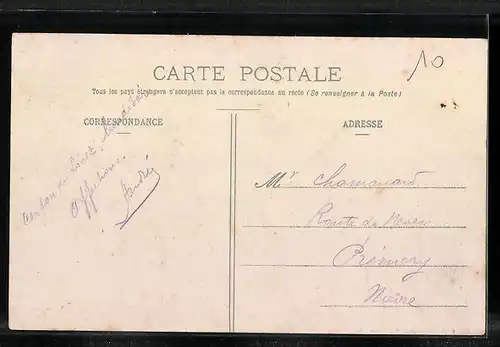 10
CARTE POSTALE
Tous les pays étrangers n'acceptent pas la correspondance au recto (Se renseigner à la Poste)
CORRESPONDANCE
ADRESSE
Affections.
André
Mr Chamouard
Route de Nevers
Prémery
Nièvre